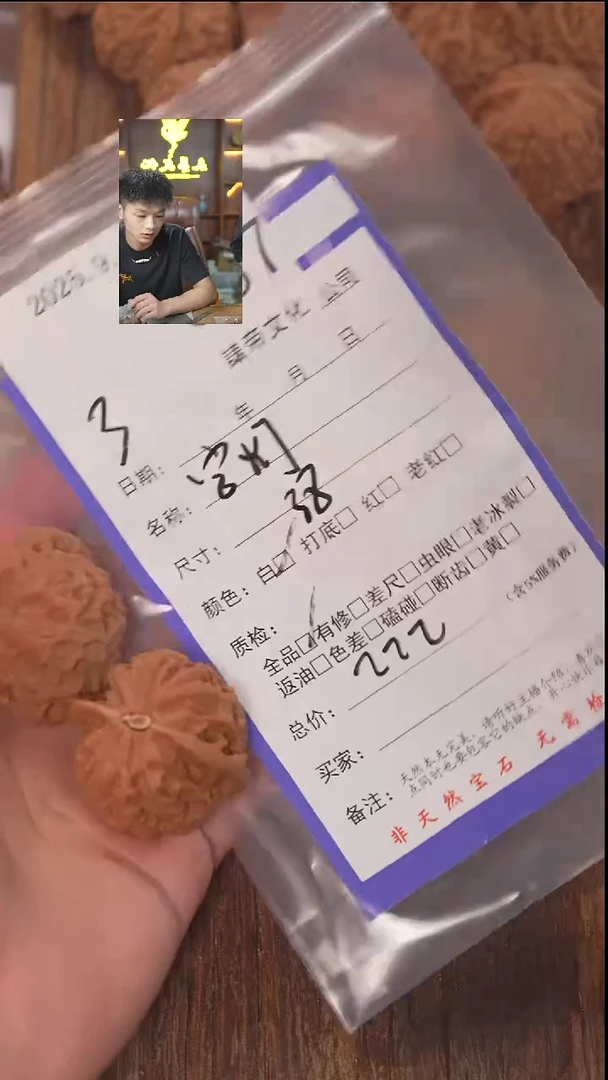 2025.9
37
諸商文化 公司
3
日期： 年 月 日
名称：宫灯
尺寸：38
颜色：白☑ 打底□ 红□ 老红□
质检：
全品☑有修□差尺□虫眼□老冰裂□
返油□色差□磕碰□断齿□黄□
总价：222 （含5%服务费）
买家：
备注：天然本无完美，请听好主播介绍，
点同时也要包容它的缺点，开心快乐
非天然宝石 无需检